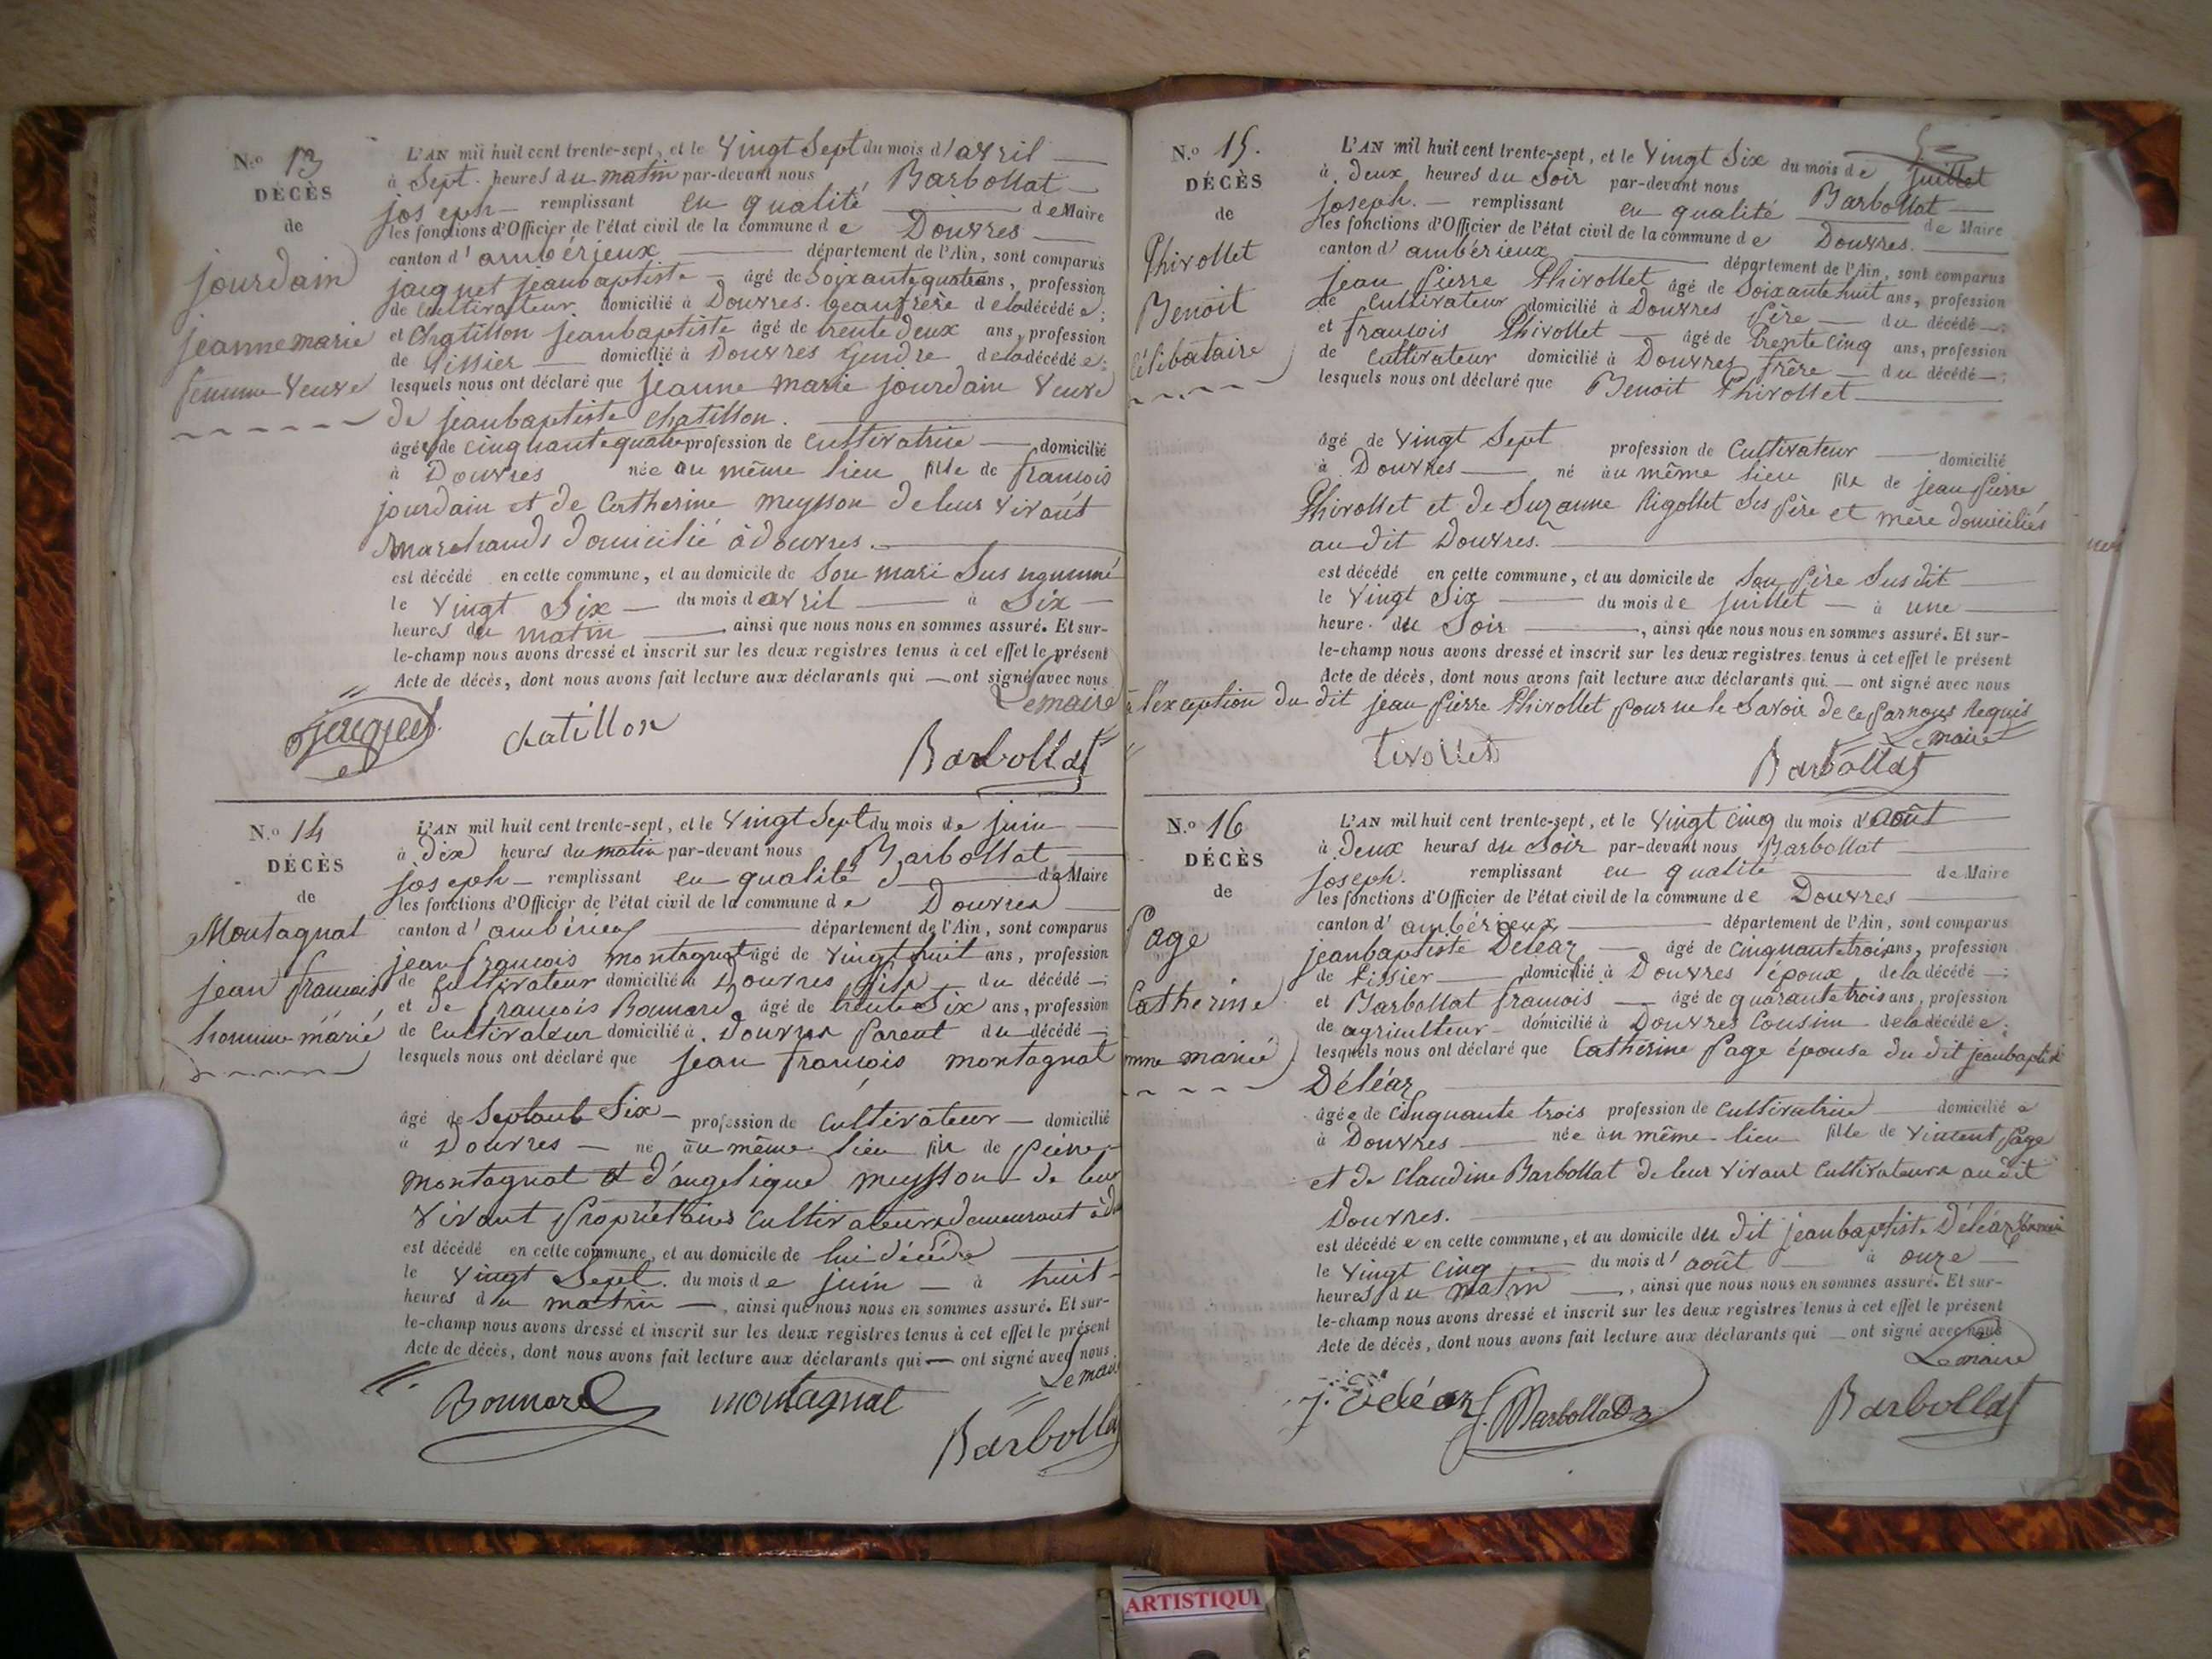 N.o 13
DÉCÈS
de
jourdain
jeanne marie
femme veuve
L'AN mil huit cent trente-sept, et le vingt Sept du mois d'avril
à Sept heures du matin par-devant nous Barbollat
joseph remplissant en qualité de Maire
les fonctions d'Officier de l'état civil de la commune de Douvres
canton d'ambérieux département de l'Ain, sont comparus
jacquet jeanbaptiste âgé de Soixante quatre ans, profession
de Cultivateur domicilié à Douvres beaufrère de la décédée;
et Chatillon jeanbaptiste âgé de trente deux ans, profession
de tissier domicilié à Douvres Gendre de la décédée;
lesquels nous ont déclaré que jeanne marie jourdain veuve
de jeanbaptiste Chatillon.
âgée de cinquante quatre profession de cultivatrice domicilié
à Douvres née au même lieu fille de francois
jourdain et de Catherine meysson de leur vivant
marchands domicilié à douvres.
est décédé en cette commune, et au domicile de Son mari Sus nommé
le vingt Six du mois d'avril à Six
heures du matin ainsi que nous nous en sommes assuré. Et sur-
le-champ nous avons dressé et inscrit sur les deux registres tenus à cet effet le présent
Acte de décès, dont nous avons fait lecture aux déclarants qui ont signé avec nous
Le maire
jacquet chatillon
Barbollat
N.o 14
DÉCÈS
de
Montagnat
jean francois
homme marié
L'AN mil huit cent trente-sept, et le vingt Sept du mois de juin
à Dix heures du matin par-devant nous Barbollat
joseph remplissant en qualité de Maire
les fonctions d'Officier de l'état civil de la commune de Douvres
canton d'ambérieux département de l'Ain, sont comparus
jean francois montagnat âgé de vingt huit ans, profession
de Cultivateur domicilié à Douvres fils du décédé;
et de francois Bonnard âgé de trente Six ans, profession
de Cultivateur domicilié à Douvres parent du décédé;
lesquels nous ont déclaré que jean francois montagnat
âgé de Septante Six profession de Cultivateur domicilié
à Douvres né au même lieu fils de pierre
montagnat et d'angelique meysson de leur
vivant propriétaires cultivateurs demeurant à
est décédé en cette commune, et au domicile de lui décédé
le vingt Sept du mois de juin à huit
heures du matin, ainsi que nous nous en sommes assuré. Et sur-
le-champ nous avons dressé et inscrit sur les deux registres tenus à cet effet le présent
Acte de décès, dont nous avons fait lecture aux déclarants qui ont signé avec nous
Le maire
Bonnard montagnat
Barbollat
N.o 15.
DÉCÈS
de
Thivollet
Benoit
célibataire
L'AN mil huit cent trente-sept, et le vingt Six du mois de juillet
à Deux heures du Soir par-devant nous Barbollat
joseph. remplissant en qualité de Maire
les fonctions d'Officier de l'état civil de la commune de Douvres.
canton d'ambérieux département de l'Ain, sont comparus
jean pierre Thivollet âgé de Soixante huit ans, profession
de Cultivateur domicilié à Douvres père du décédé;
et francois Thivollet âgé de trente cinq ans, profession
de Cultivateur domicilié à Douvres frère du décédé;
lesquels nous ont déclaré que Benoit Thivollet
âgé de vingt Sept profession de Cultivateur domicilié
à Douvres né au même lieu fils de jean pierre
Thivollet et de Suzanne Rigollet Ses père et mère domiciliés
au dit Douvres.
est décédé en cette commune, et au domicile de Son père Susdit
le vingt Six du mois de juillet à une
heure du Soir, ainsi que nous nous en sommes assuré. Et sur-
le-champ nous avons dressé et inscrit sur les deux registres tenus à cet effet le présent
Acte de décès, dont nous avons fait lecture aux déclarants qui ont signé avec nous
à l'exception du dit jean pierre Thivollet pour ne le Savoir de ce par nous requis
Le maire
tivollet
Barbollat
N.o 16
DÉCÈS
de
Page
Catherine
mme mariée
L'AN mil huit cent trente-sept, et le vingt cinq du mois d'août
à Deux heures du Soir par-devant nous Barbollat
joseph. remplissant en qualité de Maire
les fonctions d'Officier de l'état civil de la commune de Douvres
canton d'ambérieux département de l'Ain, sont comparus
jeanbaptiste Déléaz âgé de cinquante trois ans, profession
de tissier domicilié à Douvres époux de la décédé;
et Barbollat francois âgé de quarante trois ans, profession
de agriculteur domicilié à Douvres Cousin de la décédée;
lesquels nous ont déclaré que Catherine Page épouse du dit jeanbaptiste
Déléaz
âgée de cinquante trois profession de Cultivatrice domicilié e
à Douvres née au même lieu fille de vincent Page
et de Claudine Barbollat de leur vivant Cultivateurs au dit
Douvres.
est décédé e en cette commune, et au domicile du dit jeanbaptiste Déléaz
le vingt cinq du mois d'août à onze
heures du matin, ainsi que nous nous en sommes assuré. Et sur-
le-champ nous avons dressé et inscrit sur les deux registres tenus à cet effet le présent
Acte de décès, dont nous avons fait lecture aux déclarants qui ont signé avec nous
Le maire
j. Déléaz f. Barbollat
Barbollat
ARTISTIQU